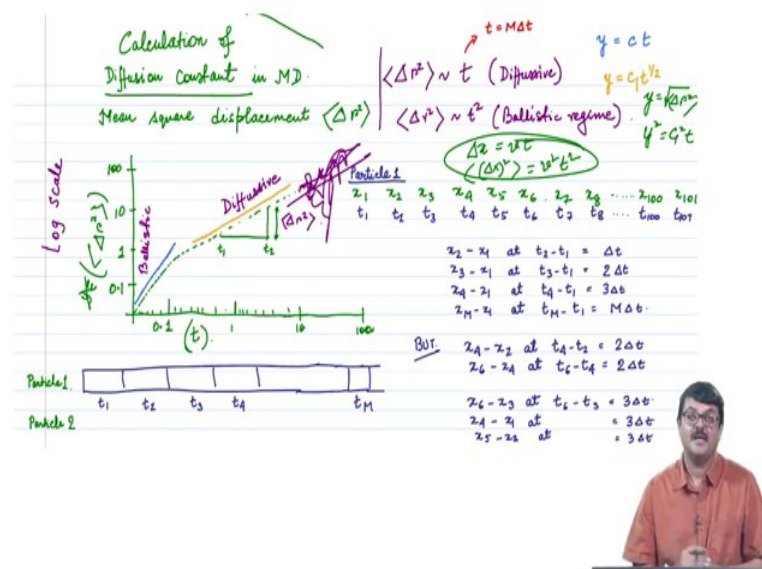 Calculation of
Diffusion constant in MD.
Mean square displacement ⟨Δr²⟩
t = MΔt
⟨Δr²⟩ ~ t (Diffusive)
⟨Δr²⟩ ~ t² (Ballistic regime)
y = ct
y = C₁t^1/2
y = √⟨Δr²⟩
y² = C₁²t
Δx = vt
⟨(Δx)²⟩ = v²t²
Log scale
(⟨Δr²⟩)
100
10
1
0.1
Ballistic
Diffusive
⟨Δr²⟩
t₁ t₂
0.1 1 10 100
(t)
Particle 1
x₁ x₂ x₃ x₄ x₅ x₆ x₇ x₈ ..... x₁₀₀ x₁₀₁
t₁ t₂ t₃ t₄ t₅ t₆ t₇ t₈ .... t₁₀₀ t₁₀₁
x₂ - x₁ at t₂-t₁ = Δt
x₃ - x₁ at t₃-t₁ = 2Δt
x₄ - x₁ at t₄-t₁ = 3Δt
x_M - x₁ at t_M-t₁ = MΔt.
BUT.
x₄ - x₂ at t₄-t₂ = 2Δt
x₆ - x₄ at t₆-t₄ = 2Δt
x₆ - x₃ at t₆-t₃ = 3Δt
x₄ - x₁ at = 3Δt
x₅ - x₂ at = 3Δt
Particle 1.
t₁ t₂ t₃ t₄ t_M
Particle 2